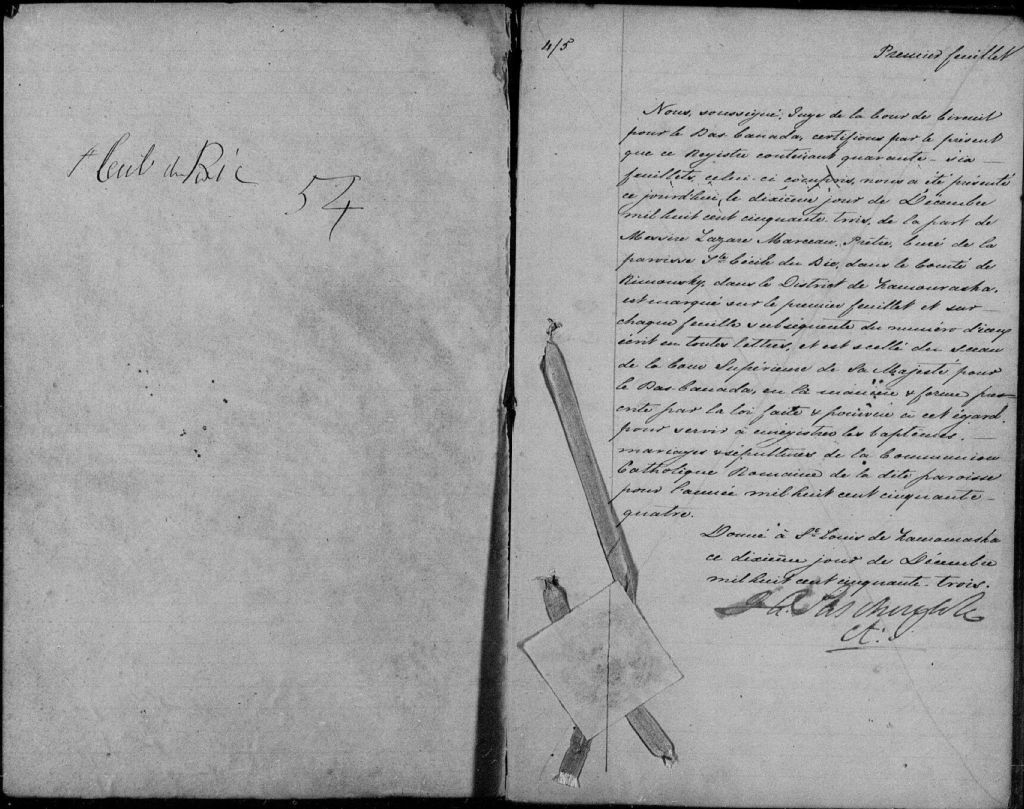 du Bic
54
4/5
Premier feuillet
Nous, soussigné, Juge de la Cour de Circuit
pour le Bas Canada, certifions par le présent
que ce Registre contenant quarante-six —
feuillets, celui-ci compris, nous a été présenté
ce jourd'hui, le dixième jour de Décembre
mil huit cent cinquante-trois, de la part de
Messire Lazare Marceau, Prêtre, Curé de la
paroisse Ste Cécile du Bic, dans le Comté de
Rimousky, dans le District de Kamouraska,
est marqué sur le premier feuillet et sur —
chaque feuille subséquente du numéro d'iceux
écrit en toutes lettres, et est scellé du sceau
de la Cour Supérieure de Sa Majesté pour
le Bas-Canada, en la manière & forme pres-
crite par la loi faite & pourvue à cet égard,
pour servir à enregistrer les baptêmes, —
mariages & sépultures de la Communion
Catholique Romaine de la dite paroisse
pour l'année mil huit cent cinquante-
quatre.
Donné à St Louis de Kamouraska
ce dixième jour de Décembre
mil huit cent cinquante-trois.